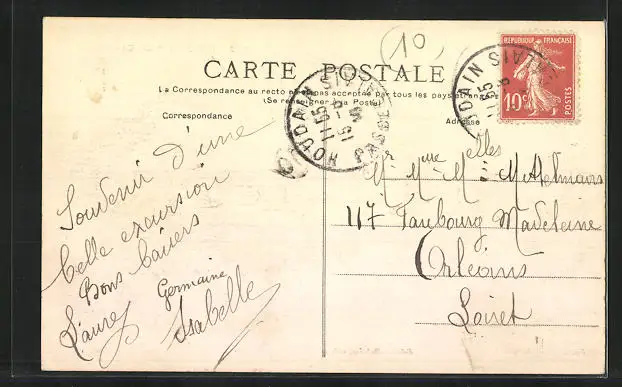 10
CARTE POSTALE
La Correspondance au recto n'est pas acceptée par tous les pays étrangers
(Se renseigner à la Poste)
Correspondance
Adresse
RÉPUBLIQUE FRANÇAISE
10c
POSTES
HOUDAIN
PAS DE CALAIS
11 55
HOUDAIN
11 55
Souvenir d'une
belle excursion
Bons baisers
Germaine
Laure Isabelle
Mr Mme Melles
117 Faubourg Madeleine
Orléans
Loiret